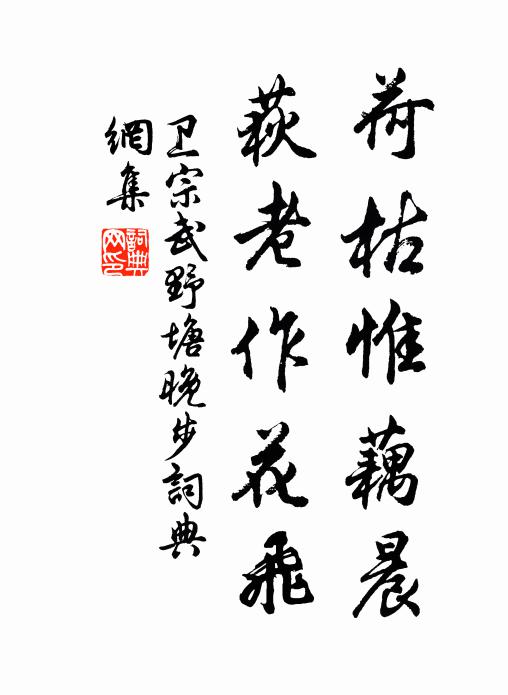 荷枯惟藕晨
萩老作花飛
卫宗武野塘晚步詞典
網集
詞典
网印